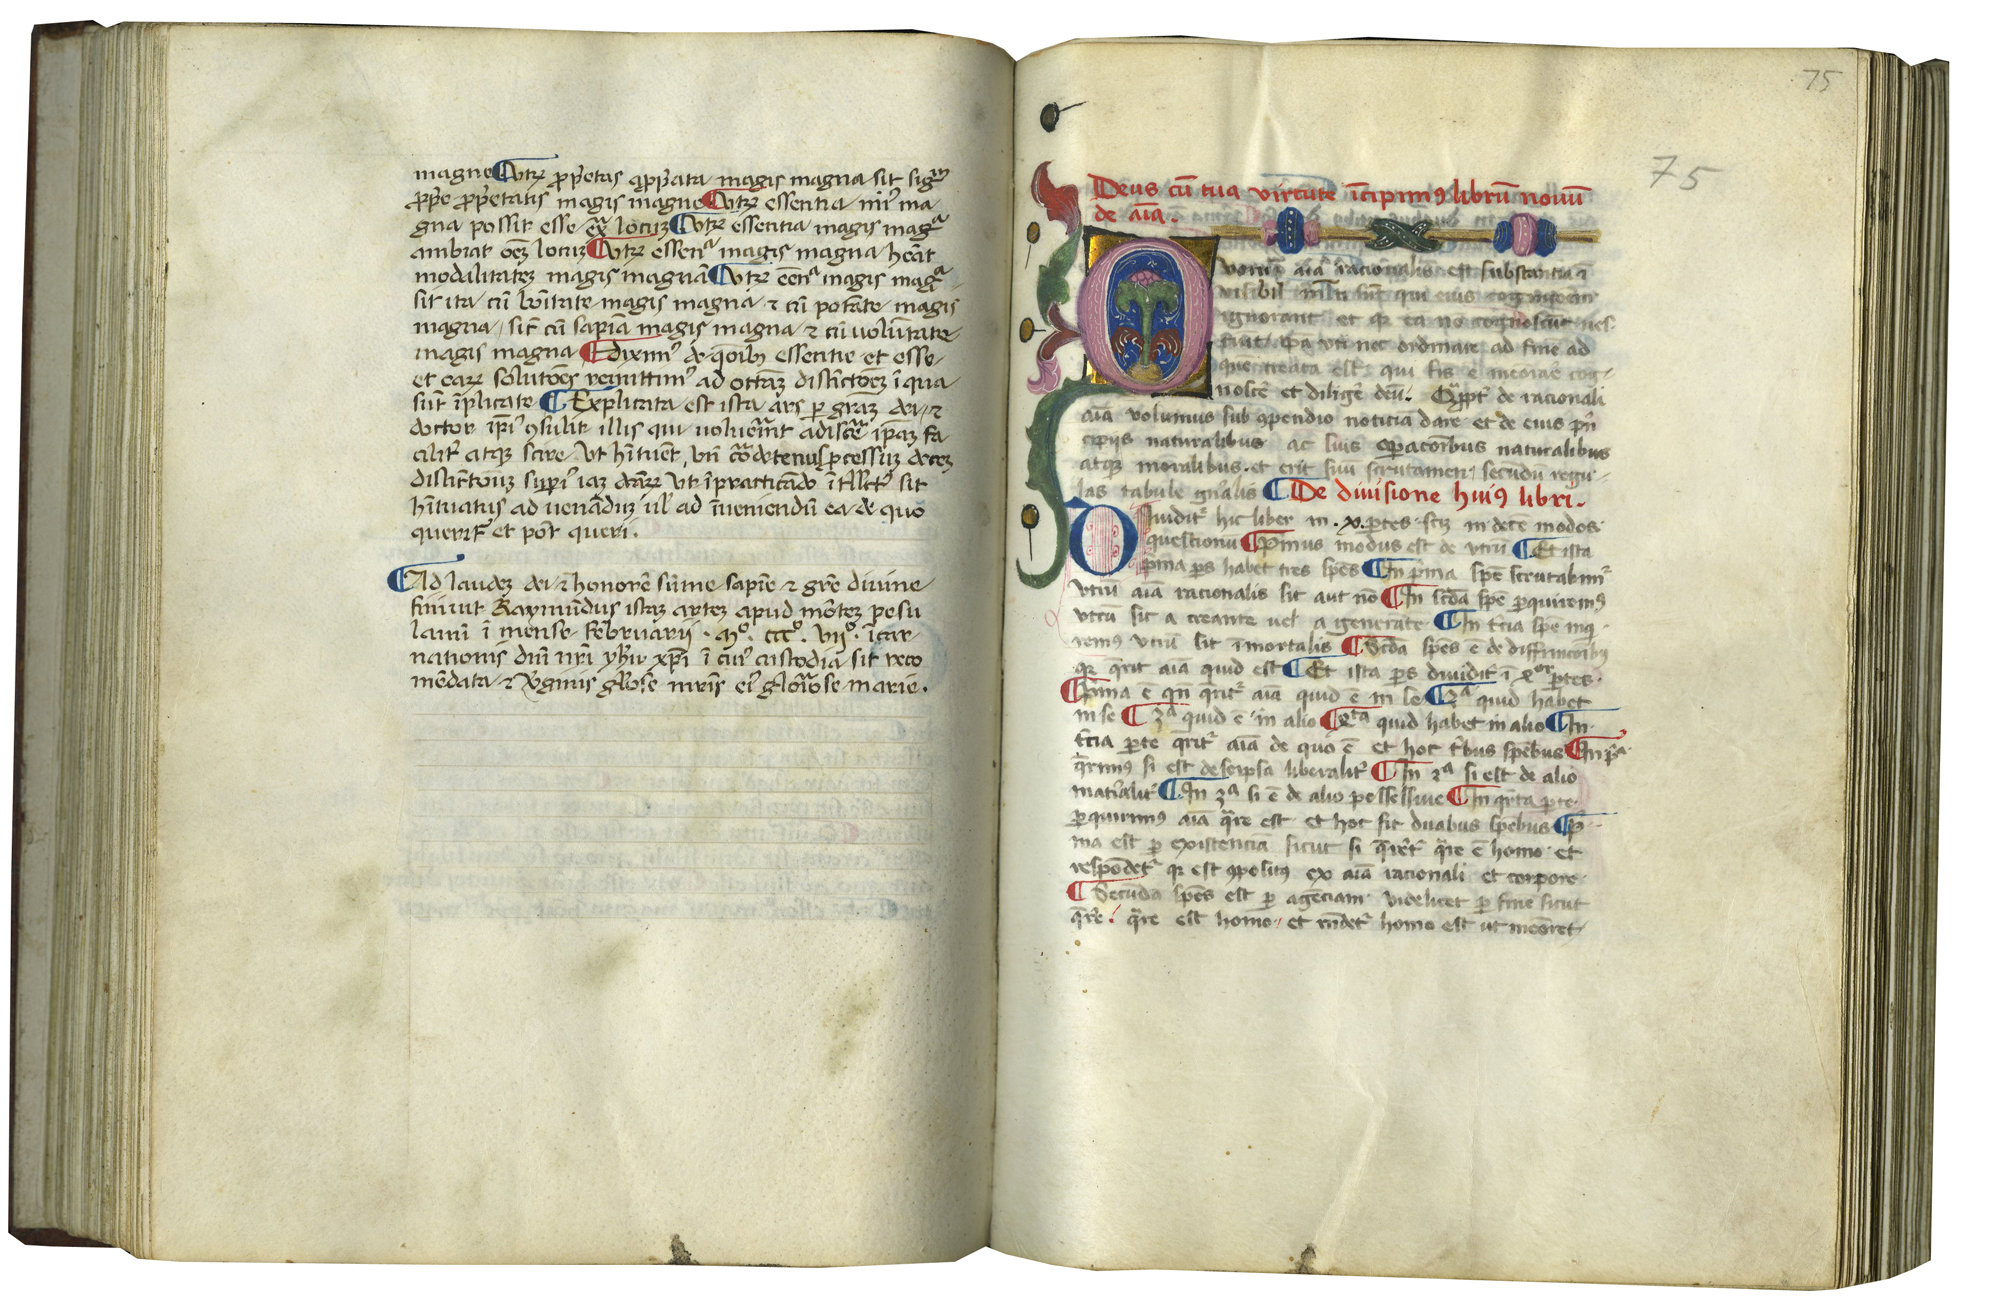 magne ¶ Vtrz ꝓp̄etas app̄ata magis magna sit sigᵐ
ꝓp̄e ꝓp̄etatis magis magne ¶ Vtrz essentia miˀ ma
gna possit esse ex̄ᵃ locuz ¶ Vtrz essentia magis magᵃ
ambiat oēz locuz ¶ Vtrz essenᵃ magis magna hēat
modalitatez magis magnā ¶ Vtrz eēnᵃ magis magᵃ
sit ita cū bōitate magis magna ⁊ cū potāte magis
magna, sit cū sapiā magis magna ⁊ cū volūtate
magis magna ¶ diximˀ de q̄oībꝫ essentie et esse
et earꝝ solutōes remittimˀ ad octāz distīctōez ī qua
sūt īplicate ¶ Explicata est ista ars p grāz dei ⁊
doctor ip̄iˀ ꝯsulit illis qui voluēīnt adiscēᵉ ip̄az fa
cilitˀ atqz scire vt hītuēt, vn̄ cōᵃdetenus ꝓcessuz decez
distīctōuz supˀiˀ iaz dc̄arꝝ vt ī practicādo ītllctˀ sit
hītuatus ad venādūz ul ad īveniendū ea de quo
queritˀ et pōt queri.
¶ Ad laudez dei ⁊ honorē sūme sapīe ⁊ grē divine
finivit Raymūdus istaz artez apud mōtez pesu
lanū ī mense februarii. Mº. cccº. viiº. īcar
nationis dni nr̄i yħu xp̄i ī cuiˀ custodia sit reco
mēdata ⁊ v̄ginis glōse mr̄is eiˀ glōīose marie.
75
75
Deus cū tua virtute īcipimꝰ librū nouū
de aīa.
Quoniā aīa racionalis est substancia ī
visibilˀ mlti sūt qui eius cognitōem
ignorant et qr ea nō cognoscūt nesˀ
ciūt ipa vti nec ordinare ad finē ad
quē creata est qui fis ē memorāe cog
noscēˀ et diligēˀ deū. Qᵃppt̄ de racionali
aīa volumus sub ꝯpendio noticiā dare et de eius pn̄
cipijs naturalibus ac huiˀ opacōibus naturalibus
atqz moralibus. et erit suū scrutamen secūdū regu
las tabule gn̄alis ¶ De diuisione huiꝰ libri.
Diuiditˀ hic liber in .x. ꝑtes. scz in decē modos
questionū ¶ Pmus modus est de vtrū ¶ Et ista
pˀma ps habet tres spēs ¶ In pˀma spē scrutabimˀ
vtrū aīa racionalis sit aut nō ¶ In scd̄a spē ꝑquiremꝰ
vtrū sit a creante uel a generate ¶ In tˀcia spe inq̄
remꝰ vtrū sit īmortalis ¶ Scd̄a spes ē de diffinicōibꝰ
qr qˀrit aīa quid est ¶ Et ista ps diuiditˀ ī 4ᵒʳ ꝑtes.
¶ Pˀma ē qn̄ qˀritˀ aīa quid ē in se ¶ 2ᵃ quid habet
in se ¶ 3ᵃ quid ē in alio ¶ Qᵗᵃ quid habet in alio ¶ In
tˀcia ꝑte qˀritˀ aīa de quo ē et hoc tˀbus spēbus ¶ In pˀᵃ
qˀrimꝰ si est de seipsa liberalitˀ ¶ In 2ᵃ si est de alio
matˀialitˀ ¶ In 3ᵃ si ē de alio possessiue ¶ In qˀrta ꝑte
ꝑquirimꝰ aīa qᵃre est et hoc fit duabus spēbus ¶ Pˀ
ma est p existenciā sicut si qˀretˀ qᵃre ē homo et
respōdetˀ qr est ꝯpositꝰ ex aīa racionali et corpore
¶ Secūda spēs est p agenciam videlicet p finē sicut
qˀreˀ. qᵃre est homo, et rn̄detˀ homo est ut meōret